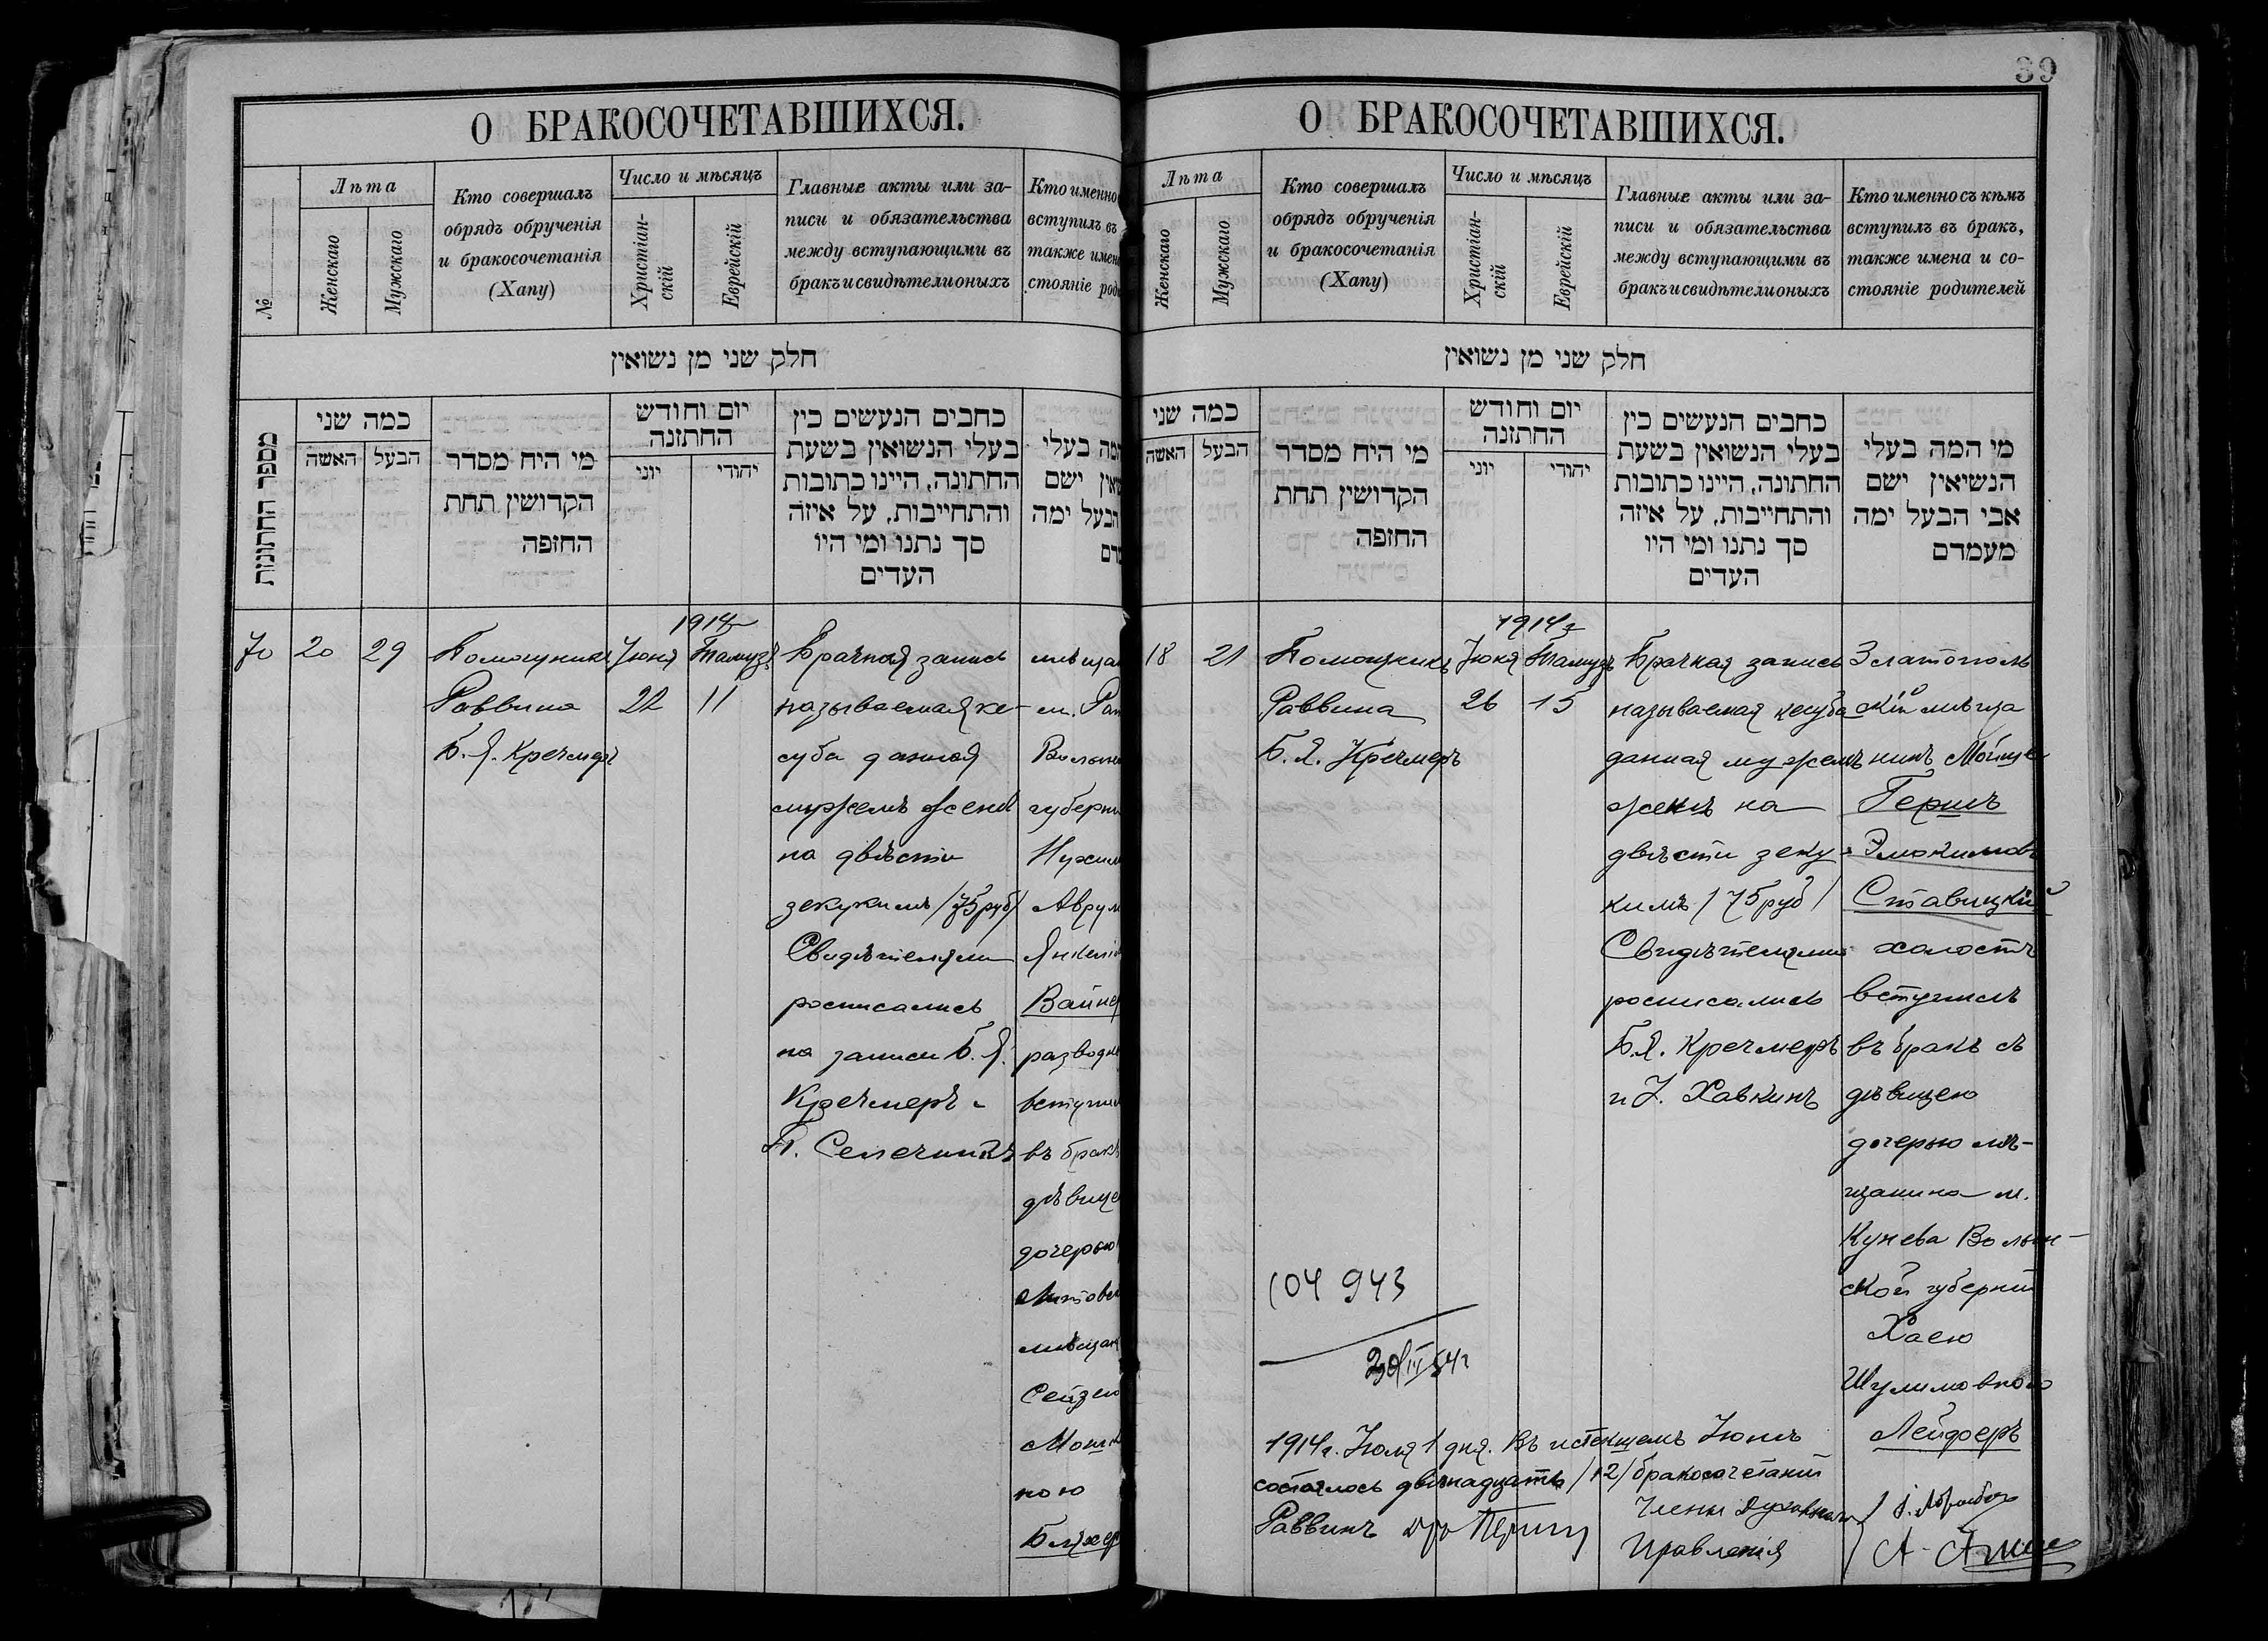 О БРАКОСОЧЕТАВШИХСЯ.
№
Лѣта
Женскаго
Мужскаго
Кто совершалъ
обрядъ обрученія
и бракосочетанія
(Хапу)
Число и мѣсяцъ
Христіан-
скій
Еврейскій
Главные акты или за-
писи и обязательства
между вступающими въ
бракъ и свидѣтели оныхъ
Кто именно
вступилъ въ
также имен
стояніе род
חלק שני מן נשואין
מספר החתונות
כמה שני
האשה
הבעל
מי היח מסדר
הקדושין תחת
החזפה
יום וחודש
החתזנה
יוני
יהודי
כחבים הנעשים כין
בעלי הנשואין בשעת
החתונה, היינו כתובות
והתחייבות, על איזה
סך נתנו ומי היו
העדים
המה בעלי
ישם
הבעל ימה
1914
70 20 29
Помощникъ
Раввина
Б. Я. Кречмеръ
Іюня
22
Тамузъ
11
Брачная запись
называемая ке-
суба данная
мужемъ женѣ
на двѣсти
зекукимъ /75 руб/
Свидѣтелями
росписались
на записи Б. Я.
Кречмеръ и
мѣщан
Волын
губерн
Аврум
Янкел
Вайне
разводн
вступил
въ бракъ
дѣвице
дочерью
мѣщан
ною
39
О БРАКОСОЧЕТАВШИХСЯ.
Лѣта
Женскаго
Мужскаго
Кто совершалъ
обрядъ обрученія
и бракосочетанія
(Хапу)
Число и мѣсяцъ
Христіан-
скій
Еврейскій
Главные акты или за-
писи и обязательства
между вступающими въ
бракъ и свидѣтели оныхъ
Кто именно съ кѣмъ
вступилъ въ бракъ,
также имена и со-
стояніе родителей
חלק שני מן נשואין
כמה שני
האשה
הבעל
מי היח מסדר
הקדושין תחת
החזפה
יום וחודש
החתזנה
יוני
יהודי
כחבים הנעשים כין
בעלי הנשואין בשעת
החתונה, היינו כתובות
והתחייבות, על איזה
סך נתנו ומי היו
העדים
מי המה בעלי
הנשיאין ישם
אבי הבעל ימה
מעמדם
1914 г
18 21
Помощникъ
Раввина
Б. Я. Кречмеръ
Іюня
26
Тамузъ
15
Брачная запись
называемая кесуба
данная мужемъ
женѣ на
двѣсти зеку-
кимъ /75 руб/
Свидѣтелями
росписались
Б. Я. Кречмеръ
и І. Хавкинъ
Златополь
скій мѣща
нинъ Мойше
Гершъ
Ставицкій
холостъ
вступилъ
въ бракъ съ
дѣвицею
дочерью мѣ-
щанина м.
Кунева Волын-
ской губерніи
Хаею
Шулимовною
Лейферъ
104 943
30/III 54 г
1914 г. Іюля 1 дня. Въ истекшемъ Іюнѣ
состоялось двѣнадцать /12/ бракосочетаній
Раввинъ
Члены Духовнаго
Правленія